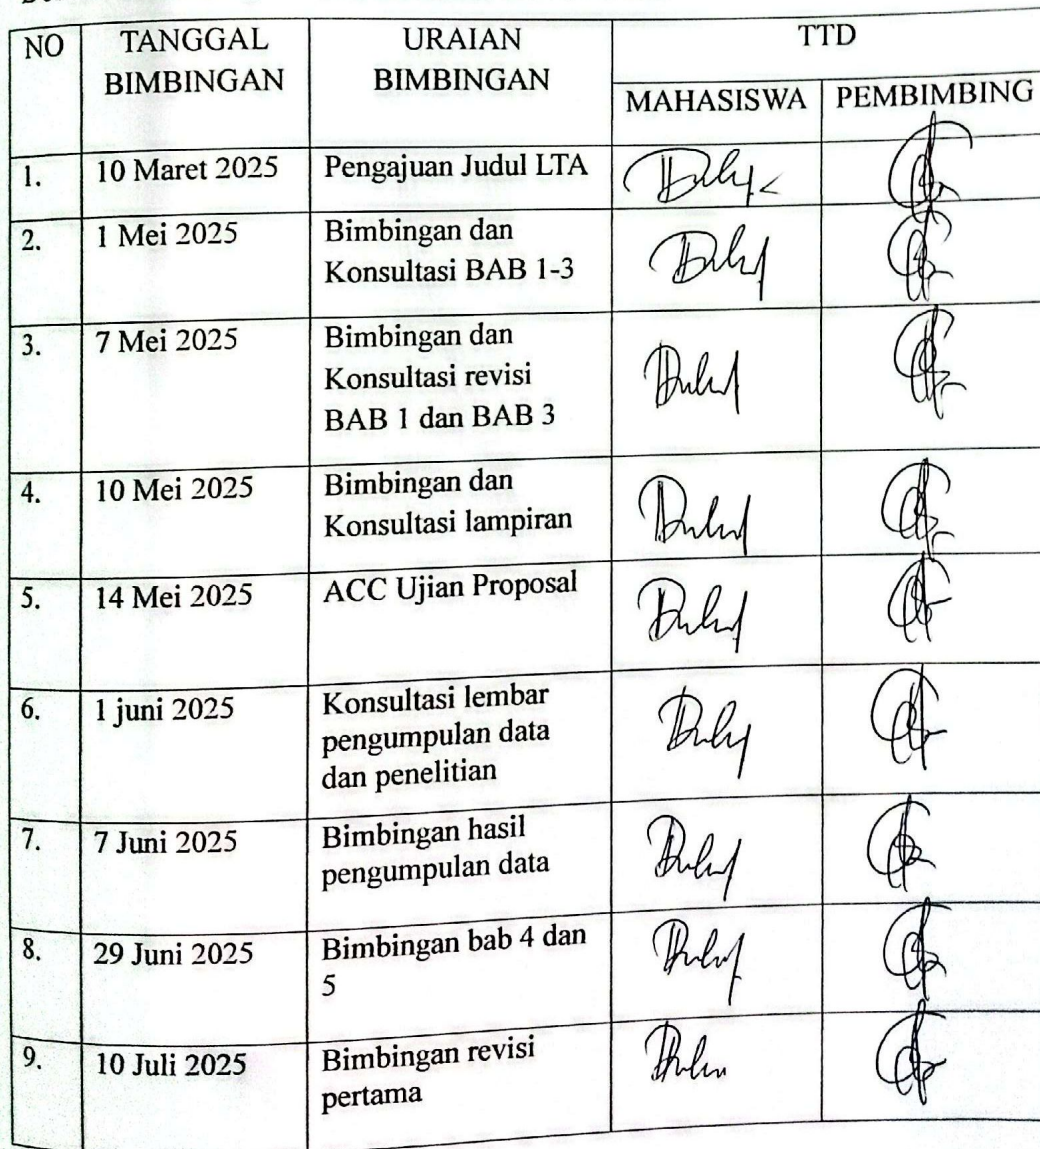 NO TANGGAL URAIAN TTD
BIMBINGAN BIMBINGAN
MAHASISWA PEMBIMBING
1. 10 Maret 2025 Pengajuan Judul LTA
2. 1 Mei 2025 Bimbingan dan
Konsultasi BAB 1-3
3. 7 Mei 2025 Bimbingan dan
Konsultasi revisi
BAB 1 dan BAB 3
4. 10 Mei 2025 Bimbingan dan
Konsultasi lampiran
5. 14 Mei 2025 ACC Ujian Proposal
6. 1 juni 2025 Konsultasi lembar
pengumpulan data
dan penelitian
7. 7 Juni 2025 Bimbingan hasil
pengumpulan data
8. 29 Juni 2025 Bimbingan bab 4 dan
5
9. 10 Juli 2025 Bimbingan revisi
pertama